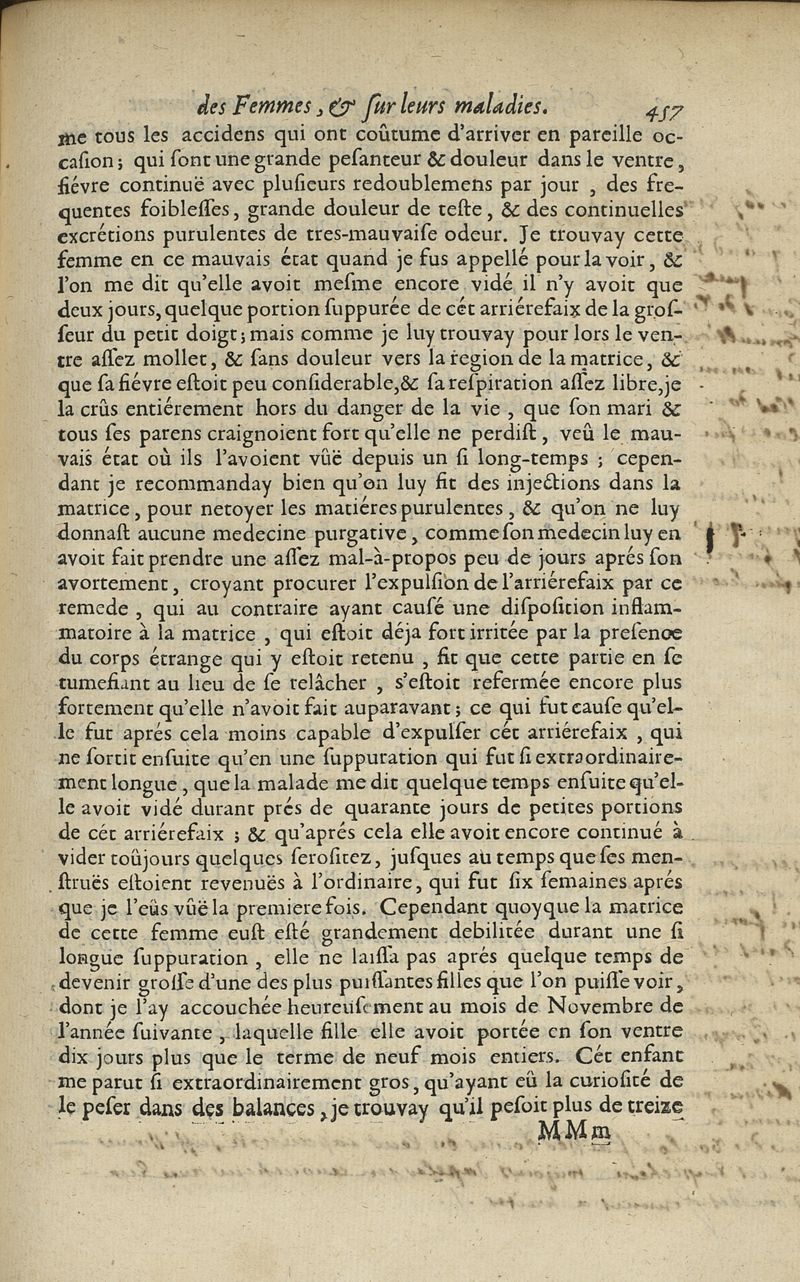 des Femmes, & ſur leurs maladies. 457
me tous les accidens qui ont coûtume d'arriver en pareille oc-
caſion; qui ſont une grande peſanteur & douleur dans le ventre,
fiévre continuë avec pluſieurs redoublemens par jour, des fre-
quentes foibleſſes, grande douleur de teſte, & des continuelles
excrétions purulentes de tres-mauvaiſe odeur. Je trouvay cette
femme en ce mauvais état quand je fus appellé pour la voir, &
l'on me dit qu'elle avoit meſme encore vidé il n'y avoit que
deux jours, quelque portion ſuppurée de cét arriérefaix de la groſ-
ſeur du petit doigt; mais comme je luy trouvay pour lors le ven-
tre aſſez mollet, & ſans douleur vers la region de la matrice, &
que ſa fiévre eſtoit peu conſiderable, & ſa reſpiration aſſez libre, je
la crûs entiérement hors du danger de la vie, que ſon mari &
tous ſes parens craignoient fort qu'elle ne perdiſt, veû le mau-
vais état où ils l'avoient vûë depuis un ſi long-temps; cepen-
dant je recommanday bien qu'on luy fit des injections dans la
matrice, pour netoyer les matiéres purulentes, & qu'on ne luy
donnaſt aucune medecine purgative, comme ſon medecin luy en
avoit fait prendre une aſſez mal-à-propos peu de jours aprés ſon
avortement, croyant procurer l'expulſion de l'arriérefaix par ce
remede, qui au contraire ayant cauſé une diſpoſition inflam-
matoire à la matrice, qui eſtoit déja fort irritée par la preſence
du corps étrange qui y eſtoit retenu, fit que cette partie en ſe
tumefiant au lieu de ſe relâcher, s'eſtoit refermée encore plus
fortement qu'elle n'avoit fait auparavant; ce qui fut cauſe qu'el-
le fut aprés cela moins capable d'expulſer cét arriérefaix, qui
ne ſortit enſuite qu'en une ſuppuration qui fut ſi extraordinaire-
ment longue, que la malade me dit quelque temps enſuite qu'el-
le avoit vidé durant prés de quarante jours de petites portions
de cét arriérefaix; & qu'aprés cela elle avoit encore continué à
vider toûjours quelques ſeroſitez, juſques au temps que ſes men-
ſtruës eſtoient revenuës à l'ordinaire, qui fut ſix ſemaines aprés
que je l'eûs vûë la premiere fois. Cependant quoyque la matrice
de cette femme euſt eſté grandement debilitée durant une ſi
longue ſuppuration, elle ne laiſſa pas aprés quelque temps de
devenir groſſe d'une des plus puiſſantes filles que l'on puiſſe voir,
dont je l'ay accouchée heureuſement au mois de Novembre de
l'année ſuivante, laquelle fille elle avoit portée en ſon ventre
dix jours plus que le terme de neuf mois entiers. Cét enfant
me parut ſi extraordinairement gros, qu'ayant eû la curioſité de
le peſer dans des balances, je trouvay qu'il peſoit plus de treize
MMm